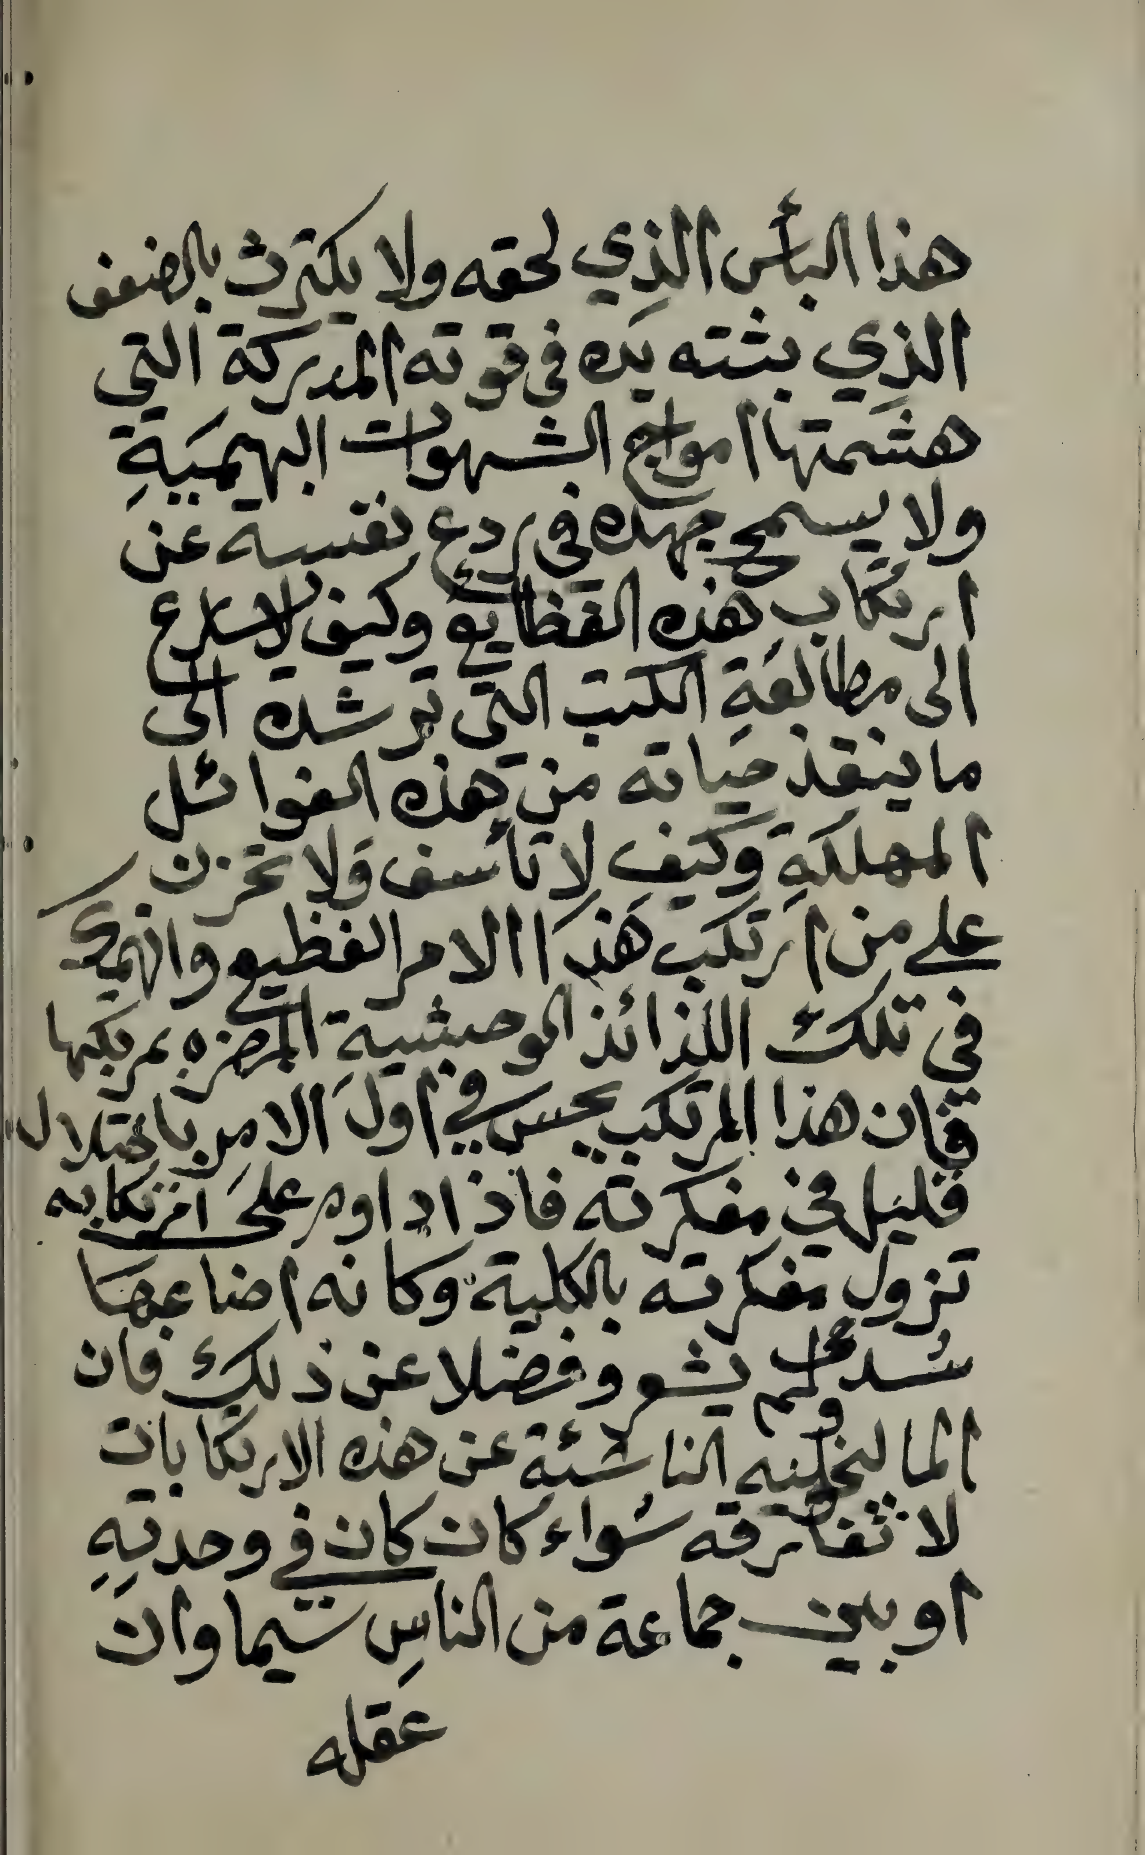 هذا البأس الذي لحقه ولا يكترث بالضعف
الذي بثته يده في قوته المدركة التي
هشمتها امواج الشهوات البهيمية
ولا يسمح جهده في ردع نفسه عن
ارتكاب هذه الفظايع وكيف لا يسارع
الى مطالعة الكتب التي ترشده الى
ما ينقذ حياته من هذه الغوائل
المهلكة وكيف لا تأسف ولا تحزن
على من ارتكب هذا الامر الفظيع وانهمك
في تلك اللذائذ الوحشية المضره بمرتكبها
فان هذا المرتكب يحس في اول الامر باختلال
قليل في مفكرته فاذا داوم على ارتكابه
تزول مفكرته بالكلية وكانه اضاعها
سُدى ولم يشعر وفضلا عن ذلك فان
الماليخوليه الناشئة عن هذه الارتكابات
لا تفارقه سواء كان كان في وحدته
او بين جماعة من الناس سيما وان
عقله